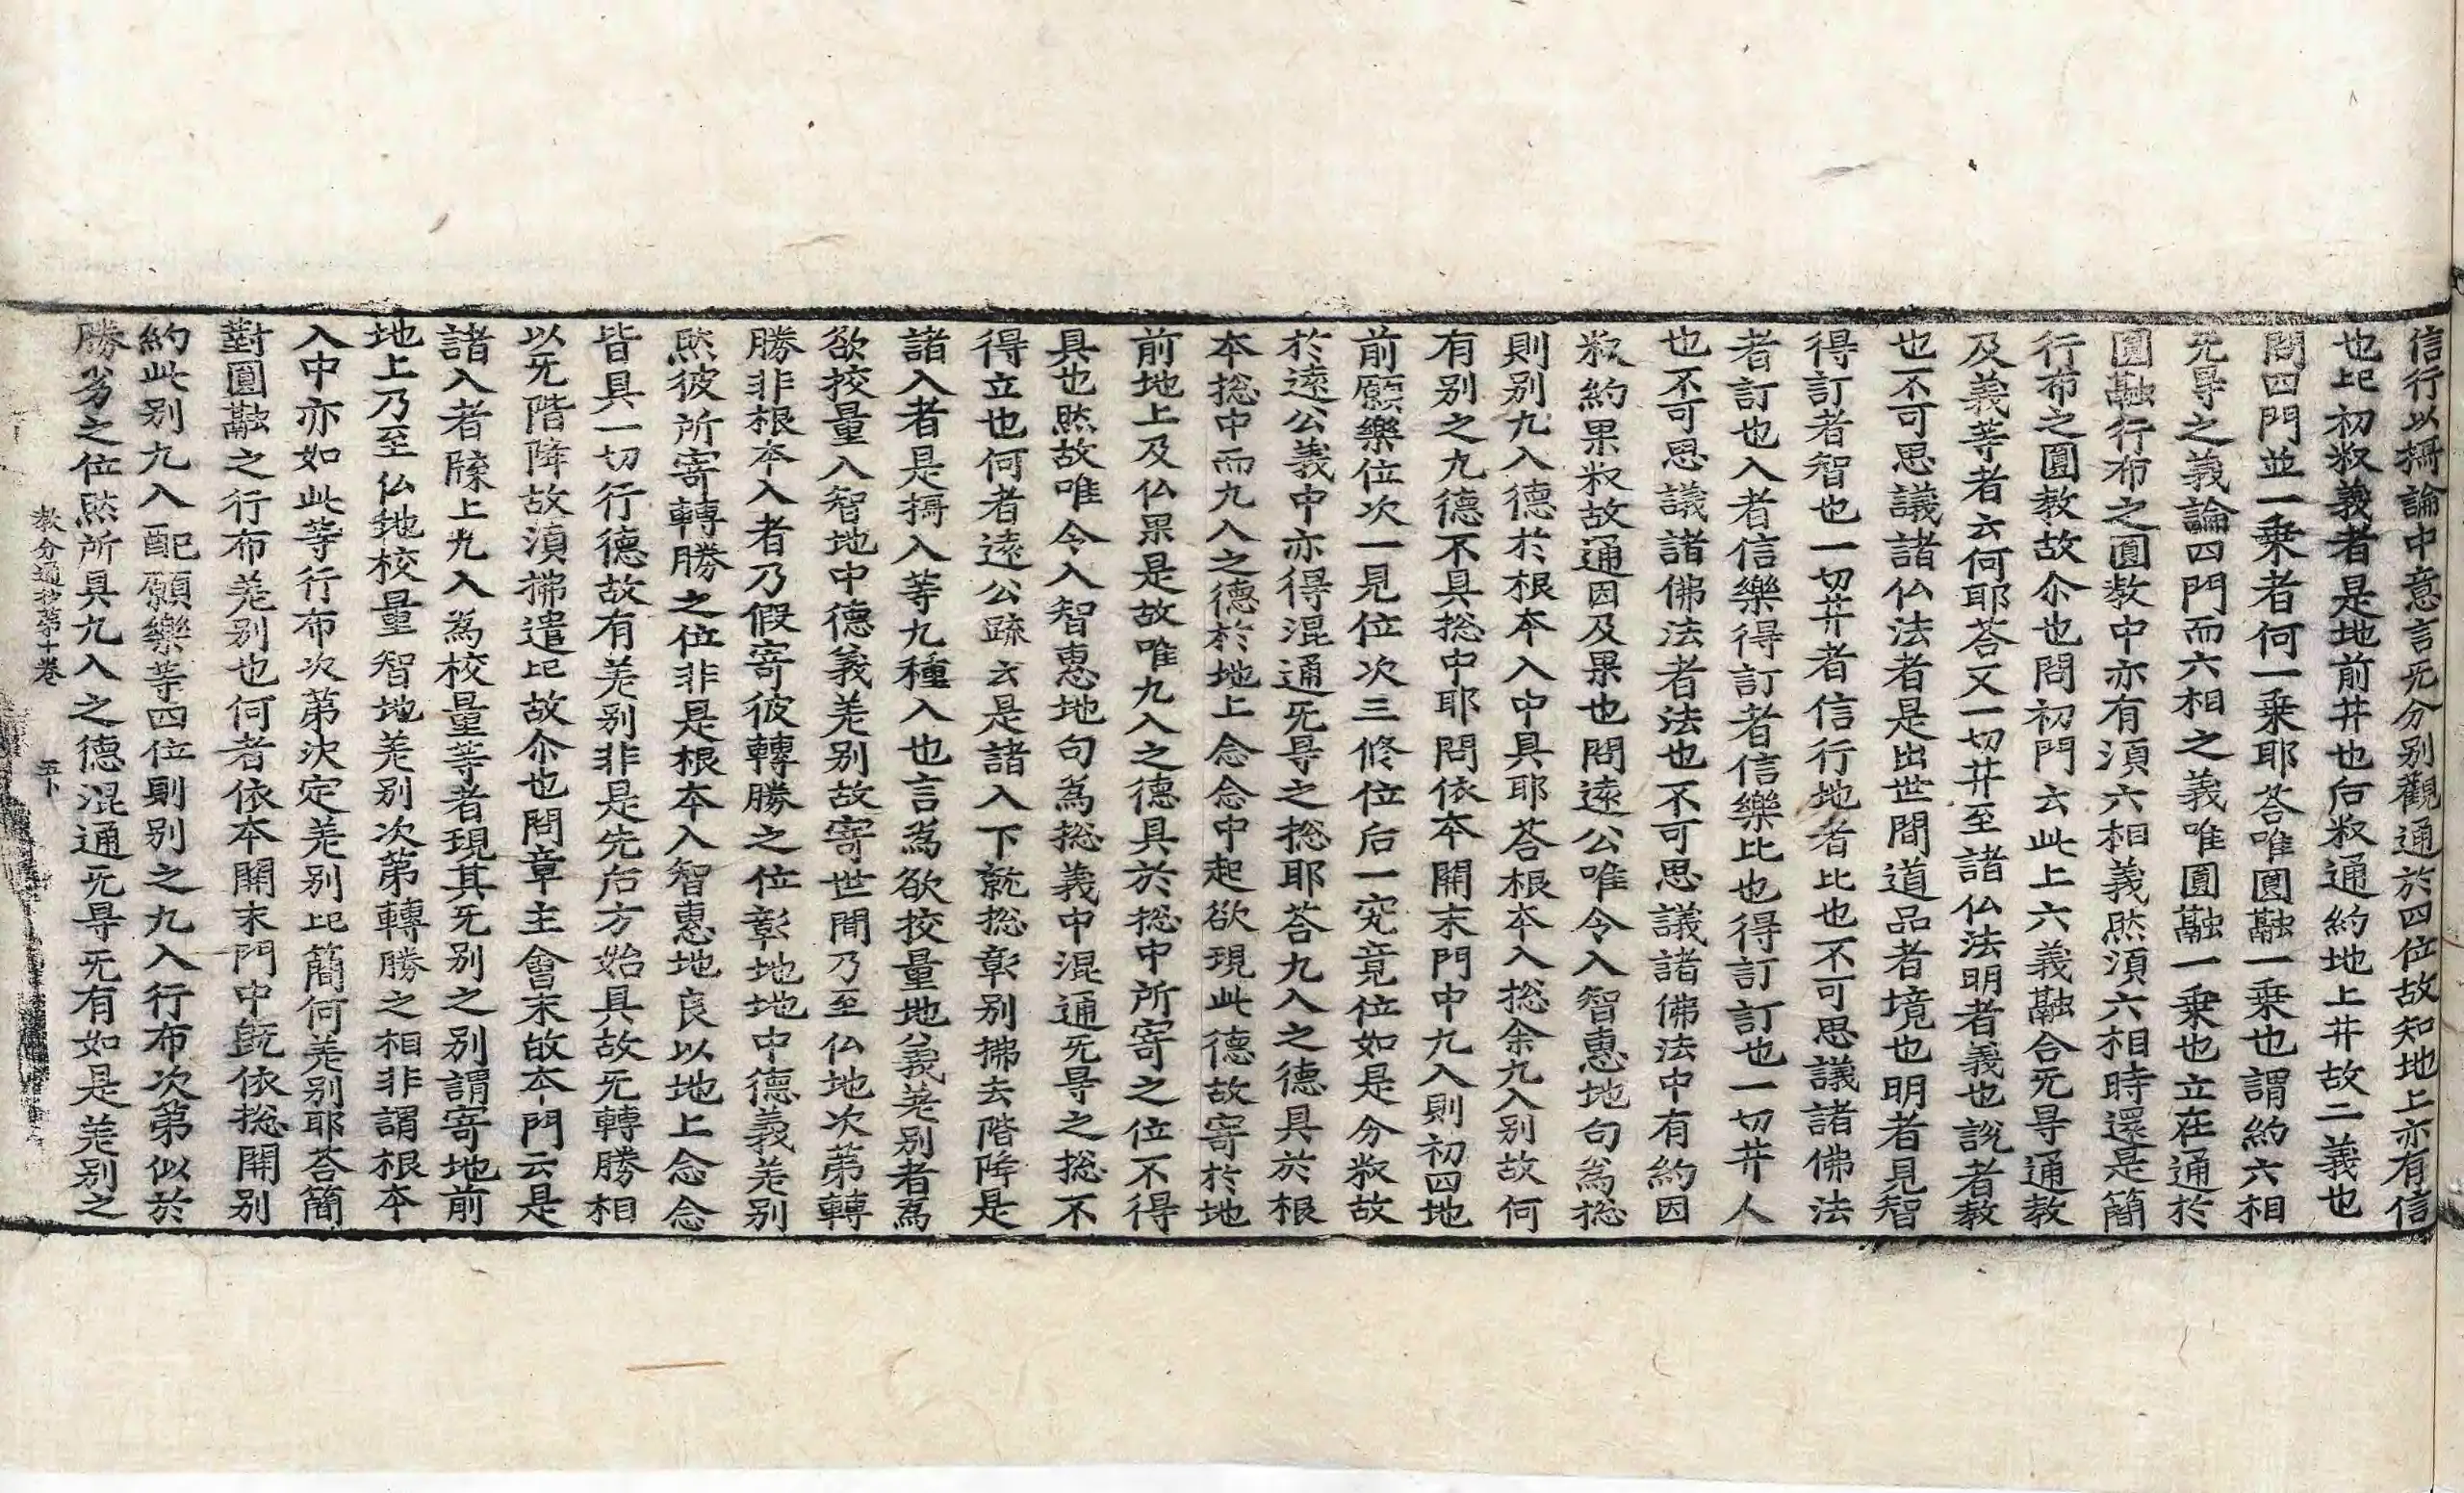 信行以攝論中意言无分別觀通於四位故知地上亦有信
也此初釈義者是地前井也后釈通約地上井故二義也
問四門並一乗者何一乗耶荅唯圓融一乗也謂約六相
无㝵之義論四門而六相之義唯圓融一乗也立在通於
圓融行布之圓敎中亦有湏六相義然湏六相時還是簡
行布之圓敎故尒也問初門云此上六義融合无㝵通敎
及義等者云何耶荅又一切井至諸仏法明者義也說者敎
也不可思議諸仏法者是出世間道品者境也明者見智
得訂者智也一切井者信行地者比也不可思議諸佛法
者訂也入者信樂得訂者信樂比也得訂訂也一切井人
也不可思議諸佛法者法也不可思議諸佛法中有約因
釈約果釈故通因及果也問遠公唯令入智惠地句為捴
則别九入德扵根本入中具耶荅根本入捴余九入别故何
有别之九德不具捴中耶問依本開末門中九入則初四地
前願樂位次一見位次三修位后一究竟位如是分釈故
扵遠公義中亦得混通无㝵之捴耶荅九入之德具扵根
本捴中而九入之德扵地上念念中起欲現此德故寄扵地
前地上及仏果是故唯九入之德具扵捴中所寄之位不得
具也然故唯令入智惠地句為捴義中混通无㝵之捴不
得立也何者遠公䟽云是諸入下就捴彰别拂去階降是
諸入者是攝入等九種入也言為欲挍量地義差别者為
欲挍量入智地中德義差别故寄世間乃至仏地次第轉
勝非根本入者乃假寄彼轉勝之位彰地地中德義差别
然彼所寄轉勝之位非是根本入智惠地良以地上念念
皆具一切行德故有差别非是先后方始具故无轉勝相
以无階降故湏拂遣此故尒也問章主會末故本門云是
諸入者牒上九入為校量等者現其无别之别謂寄地前
地上乃至仏地校量智地差别次第轉勝之相非謂根本
入中亦如此等行布次第决定差别此簡何差别耶荅簡
對圓融之行布差别也何者依本開末門中旣依捴開别
約此别九入配願樂等四位則别之九入行布次第似於
勝劣之位然所具九入之德混通无㝵无有如是差别之
敎分通抄第十卷　五下